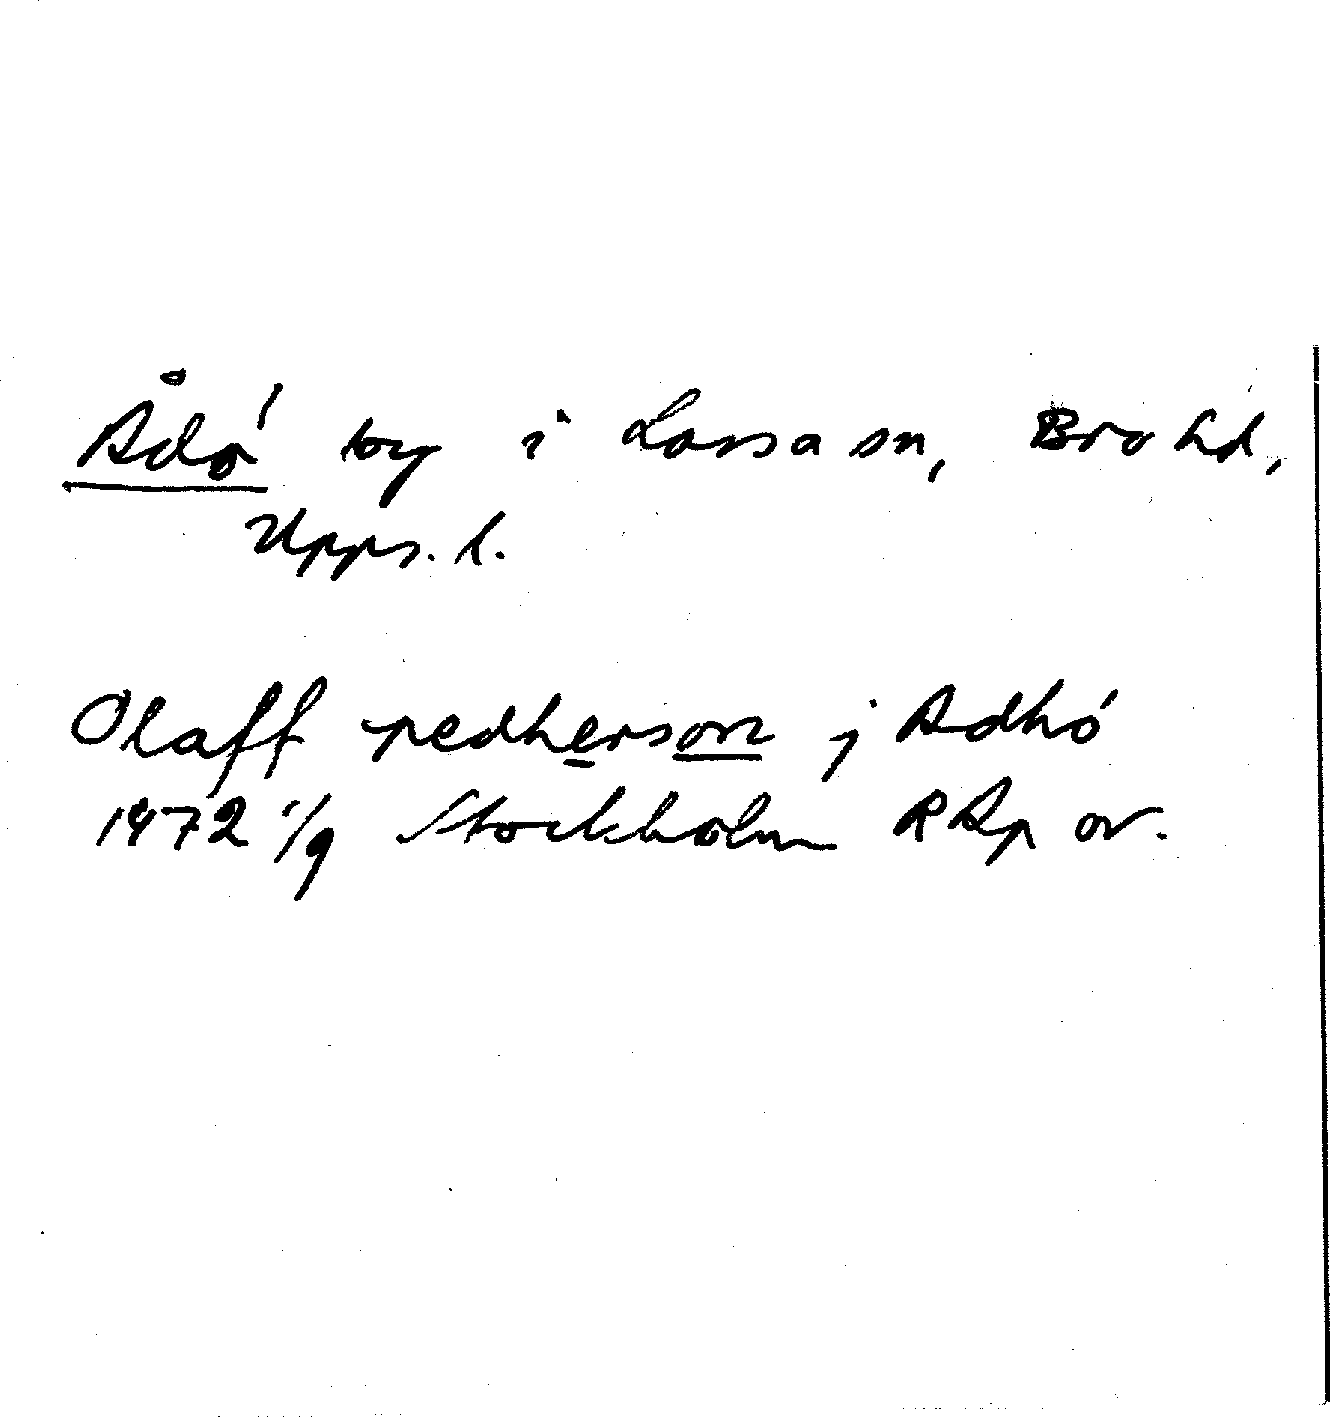 Ådó by i Lossa sn, Bro hd,
Upps. l.
Olaff pedherson j Adhó
1472 1/9 Stockholm RAp or.